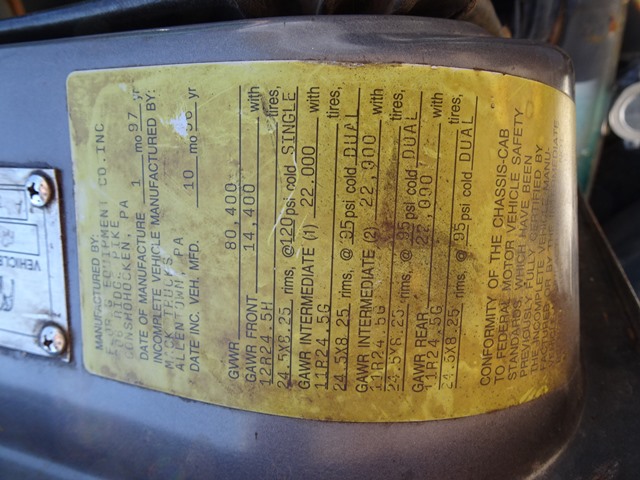 MANUFACTURED BY:
EQUIPMENT CO.INC
RIDGE PIKE
CONSHOHOCKEN, PA
DATE OF MANUFACTURE 1 mo 97 yr
INCOMPLETE VEHICLE MANUFACTURED BY:
MACK TRUCKS
ALLENTOWN PA
DATE INC. VEH. MFD. 10 mo 96 yr
GVWR 80,400
GAWR FRONT 14,400 with
12R24.5H tires,
24.5X8.25 rims, @ 120 psi cold SINGLE
GAWR INTERMEDIATE (1) 22.000 with
11R24.5G tires,
24.5X8.25 rims, @ 95 psi cold DUAL
GAWR INTERMEDIATE (2) 22,900 with
11R24.5G tires,
24.5X8.25 rims, @ 95 psi cold DUAL
GAWR REAR 22,000 with
11R24.5G tires,
24.5X8.25 rims, @ 95 psi cold DUAL
CONFORMITY OF THE CHASSIS-CAB
TO FEDERAL MOTOR VEHICLE SAFETY
STANDARDS, WHICH HAVE BEEN
PREVIOUSLY FULLY CERTIFIED BY
THE INCOMPLETE VEHICLE MANUF.
VEHICLE